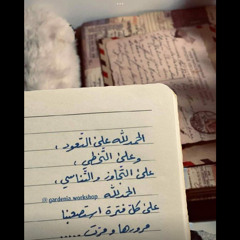 الحمدلله على التعود ،
وعلى التخطي ،
على التجاوز والتناسي ،
الحمدلله
@gardenia.workshop
على كل فترة استصعبنا
مرورها ومرت .....